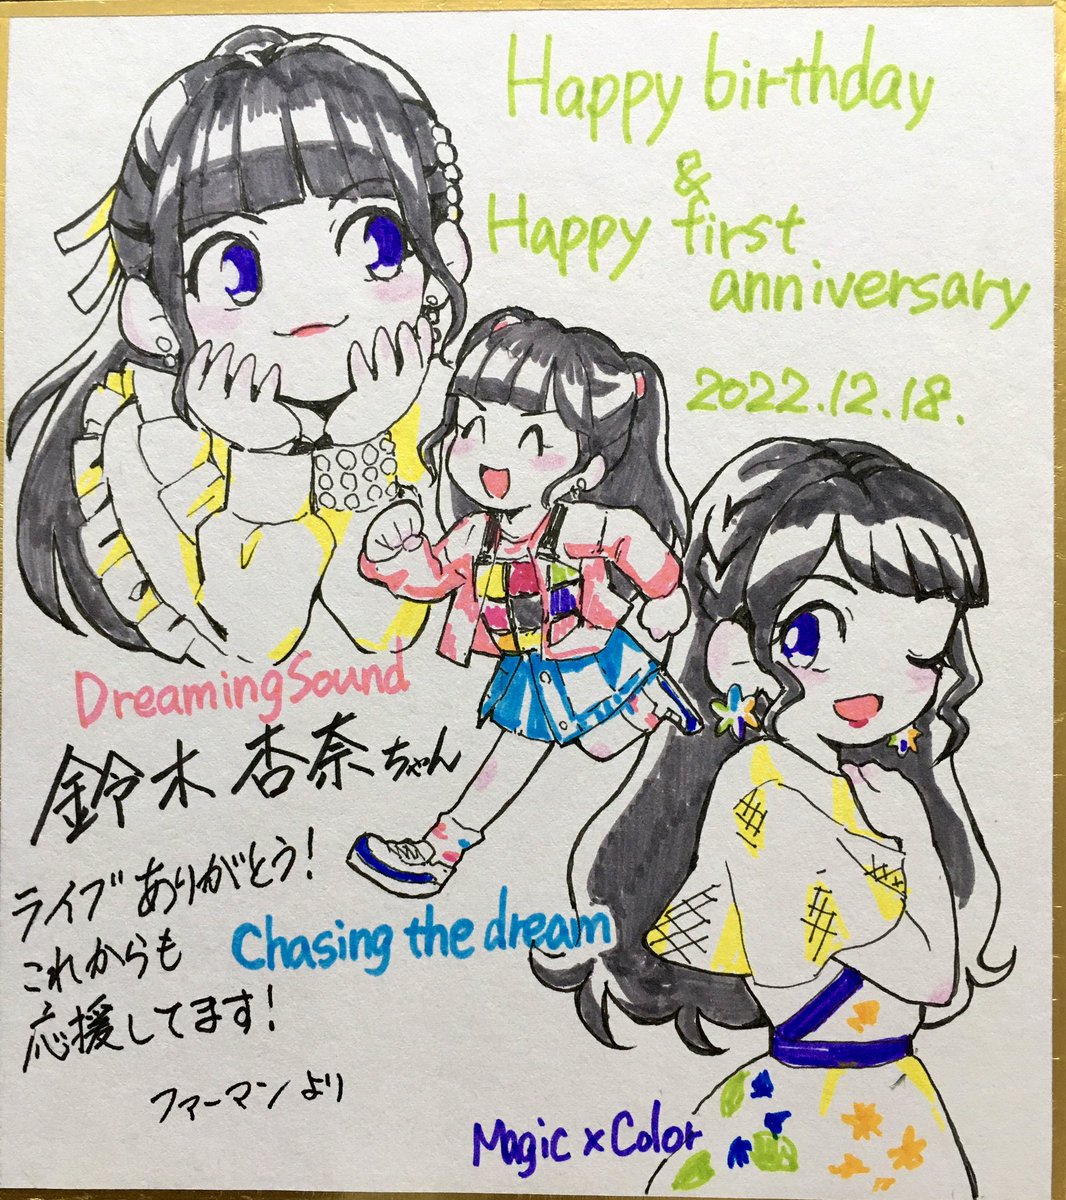 Happy birthday
&
Happy first
anniversary
2022.12.18.
Dreaming Sound
鈴木杏奈ちゃん
ライブありがとう!
これからも
応援してます!
ファーマンより
Chasing the dream
Magic x Color